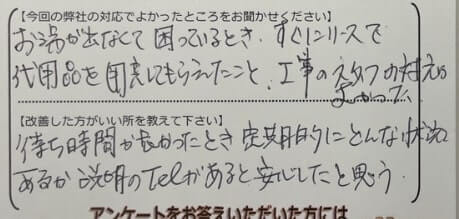 【今回の弊社の対応でよかったところをお聞かせください】
お湯が出なくて困っているとき、すぐにリースで
代用品を用意してもらえたこと、工事のスタッフの対応も
よかった。
【改善した方がいい所を教えて下さい】
待ち時間が長かったとき定期的にどんな状況
あるか説明のTelがあると安心したと思う
アンケートをお答えいただいた方には